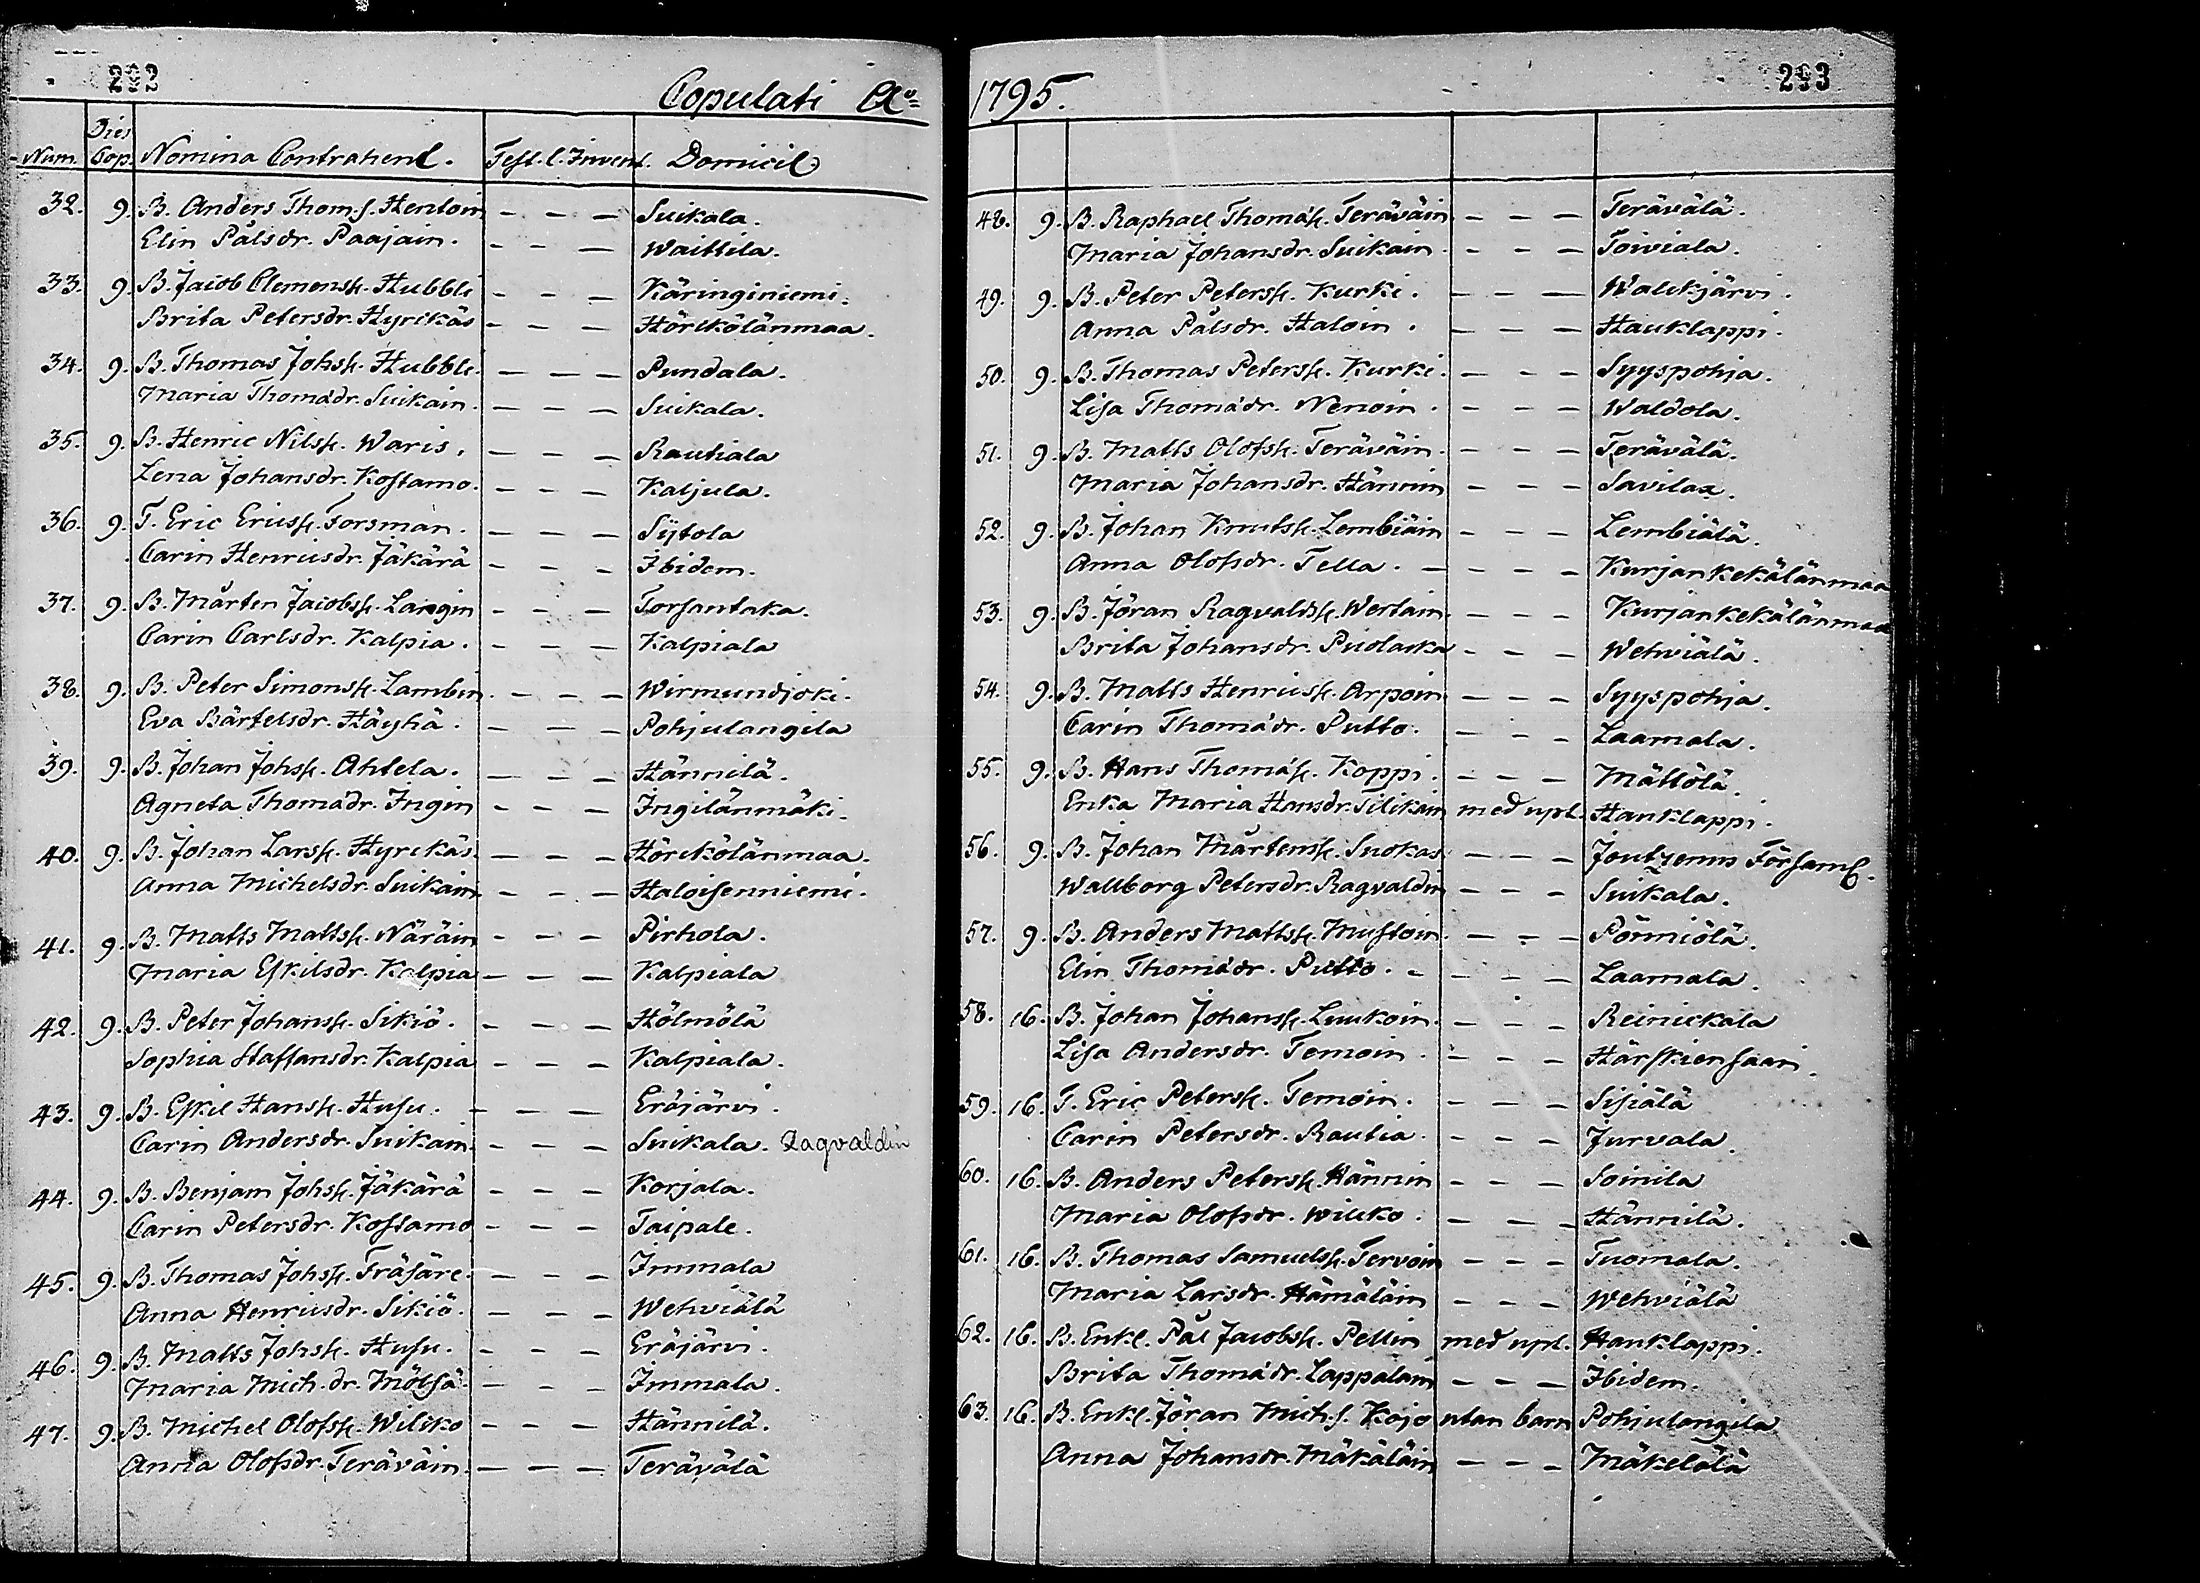 292
Copulati Ao
Num. Dies Cop. Nomina Contrahent. Test. l. Invent. Domicil
32. 9. B. Anders Thom.s. Hentoin - - - Suikala.
Elin Pålsdr. Paajain. - - - Waittila.
33. 9. B. Jacob Clemenss. Hubbli - - - Käringiniemi.
Brita Petersdr. Hyrckäs - - - Hörckölänmaa.
34. 9. B. Thomas Johss. Hubbli. - - - Pundala.
Maria Thomædr. Suikain. - - - Suikala.
35. 9. B. Henric Nilss. Waris. - - - Rautiala
Lena Johansdr. Kostamo. - - - Kaljula.
36. 9. T. Eric Ericss. Forsman. - - - Sijtola
Carin Henricsdr. Jäkärä - - - Ibidem.
37. 9. B. Mårten Jacobss. Langin - - - Torsantaka.
Carin Carlsdr. Kalpia. - - - Kalpiala
38. 9. B. Peter Simonss. Lambin. - - - Wirmundjoki.
Eva Bärtelsdr. Häyhä. - - - Pohjulangila
39. 9. B. Johan Johss. Ahtela. - - - Hännilä.
Agneta Thomædr. Ingin - - - Ingilänmäki.
40. 9. B. Johan Larss. Hyrckäs. - - - Hörckölänmaa.
Anna Michelsdr. Suikain - - - Haloisenniemi.
41. 9. B. Matts Mattss. Näräin - - - Pirhola.
Maria Eskilsdr. Kalpia - - - Kalpiala
42. 9. B. Peter Johanss. Sikiö. - - - Hölmölä
Sophia Staffansdr. Kalpia - - - Kalpiala.
43. 9. B. Eskil Hanss. Husu. - - - Eräjärvi.
Carin Andersdr. Suikain. - - - Suikala. Ragvaldin
44. 9. B. Benjam Johss. Jäkärä - - - Korjala.
Carin Petersdr. Kostamo - - - Taipale.
45. 9. B. Thomas Johss. Träsäre. - - - Immala
Anna Henricsdr. Sikiö. - - - Wehviälä
46. 9. B. Matts Johss. Husu. - - - Eräjärvi.
Maria Mich.dr. Mölsä. - - - Immala.
47. 9. B. Michel Olofss. Wilcko - - - Hännilä.
Anna Olofsdr. Teräväin. - - - Terävälä
293
1795.
48. 9. B. Raphael Thomæs. Teräväin - - - Terävälä.
Maria Johansdr. Suikain. - - - Toiviala.
49. 9. B. Peter Peterss. Kurki. - - - Walckjärvi.
Anna Pålsdr. Haloin. - - - Hauklappi.
50. 9. B. Thomas Peterss. Kurki. - - - Syyspohja.
Lisa Thomædr. Nenoin. - - - Waldola.
51. 9. B. Matts Olofss. Teräväin. - - - Terävälä.
Maria Johansdr. Hännin - - - Savilax.
52. 9. B. Johan Knutss. Lembiäin - - - Lembiälä.
Anna Olofsdr. Tella. - - - - Kurjankekälänmaa
53. 9. B. Jöran Ragvaldss. Wertain. - - - Kurjankekälänmaa
Brita Johansdr. Puolacka - - - Wehviälä.
54. 9. B. Matts Henricss. Arpoin - - - Syyspohja.
Carin Thomædr. Putto. - - - Laamala.
55. 9. B. Hans Thomæs. Koppi. - - - Mättölä.
Enka Maria Hansdr. Silikain med uplt. Hauklappi.
56. 9. B. Johan Mårtenss. Suokas - - - Joutzenus Församl.
Wallborg Petersdr. Ragvaldin - - - Suikala.
57. 9. B. Anders Mattss. Mustoin. - - - Pönniölä.
Elin Thomædr. Putto. - - - - Laamala.
58. 16. B. Johan Johanss. Luukoin. - - - Reinickala
Lisa Andersdr. Temoin. - - - Härskiensaari.
59. 16. T. Eric Peterss. Temoin. - - - Sisiälä
Carin Petersdr. Rautia. - - - Jurvala.
60. 16. B. Anders Peterss. Hännin - - - Soinila
Maria Olofsdr. Wilcko. - - - Hännilä.
61. 16. B. Thomas Samuelss. Tervoin - - - Tuomala.
Maria Larsdr. Hämäläin - - - Wehviälä
62. 16. B. Enkl. Pål Jacobss. Pellin med uplt. Hauklappi.
Brita Thomædr. Lappalain - - - Ibidem.
63. 16. B. Enkl. Jöran Mich.s. Kojo utan barn Pohjulangila
Anna Johansdr. Mäkäläin - - - Mäkelälä